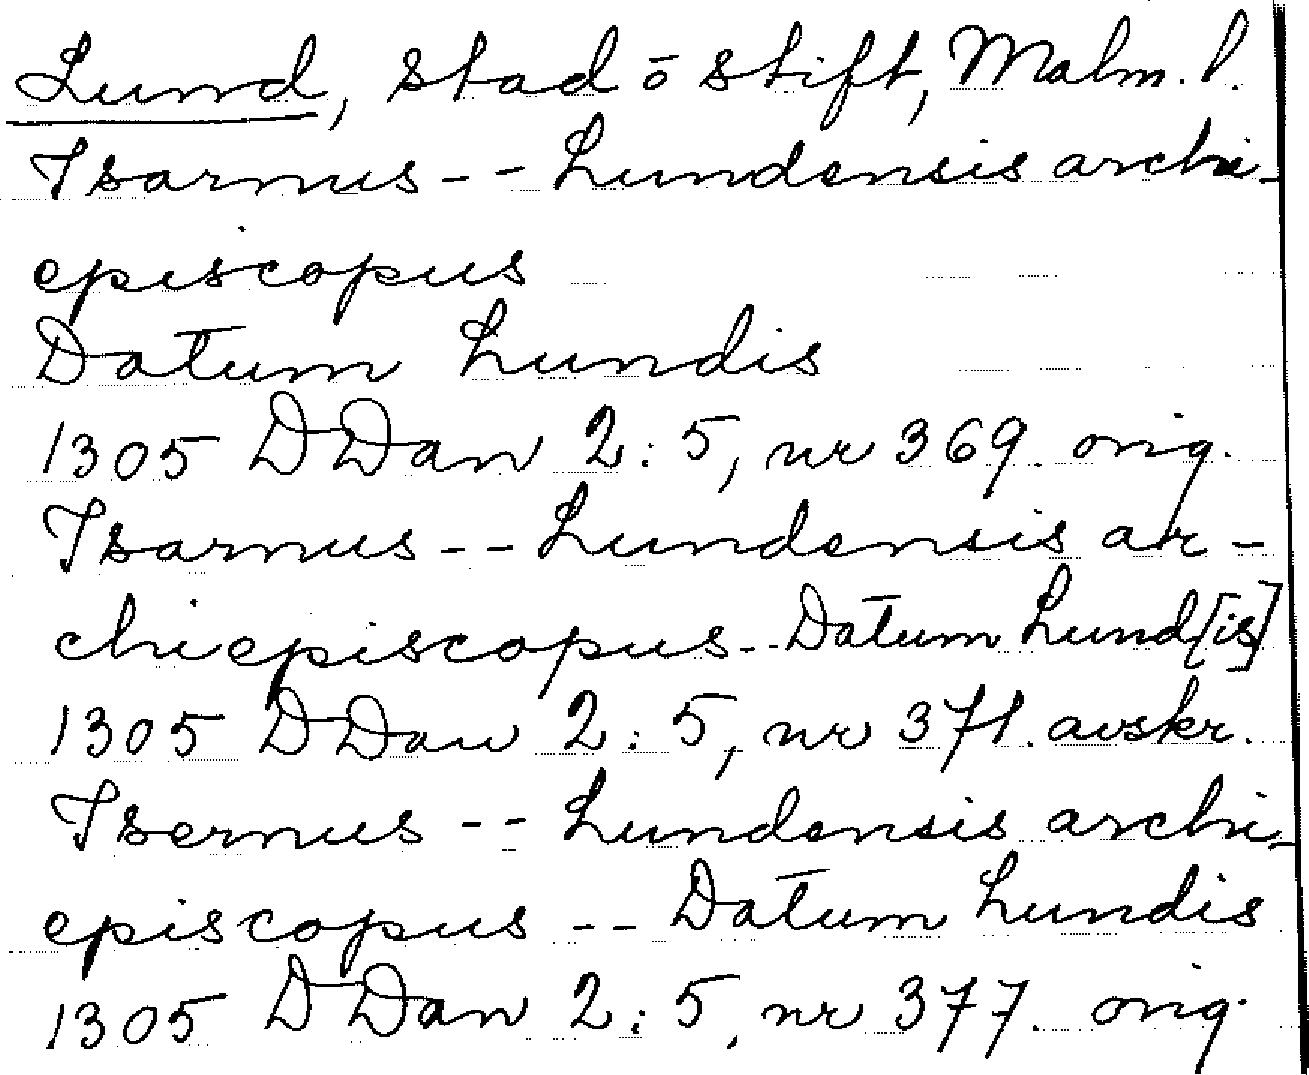 Lund, stad o stift, Malm. l.
Isarnus -- Lundensis archi-
episcopus
Datum Lundis
1305 DDan 2:5, nr 369. orig.
Isarnus -- Lundensis ar-
chiepiscopus -- Datum Lund[is]
1305 DDan 2:5, nr 371. avskr.
Isernus -- Lundensis archi-
episcopus -- Datum Lundis
1305 DDan 2:5, nr 377. orig.